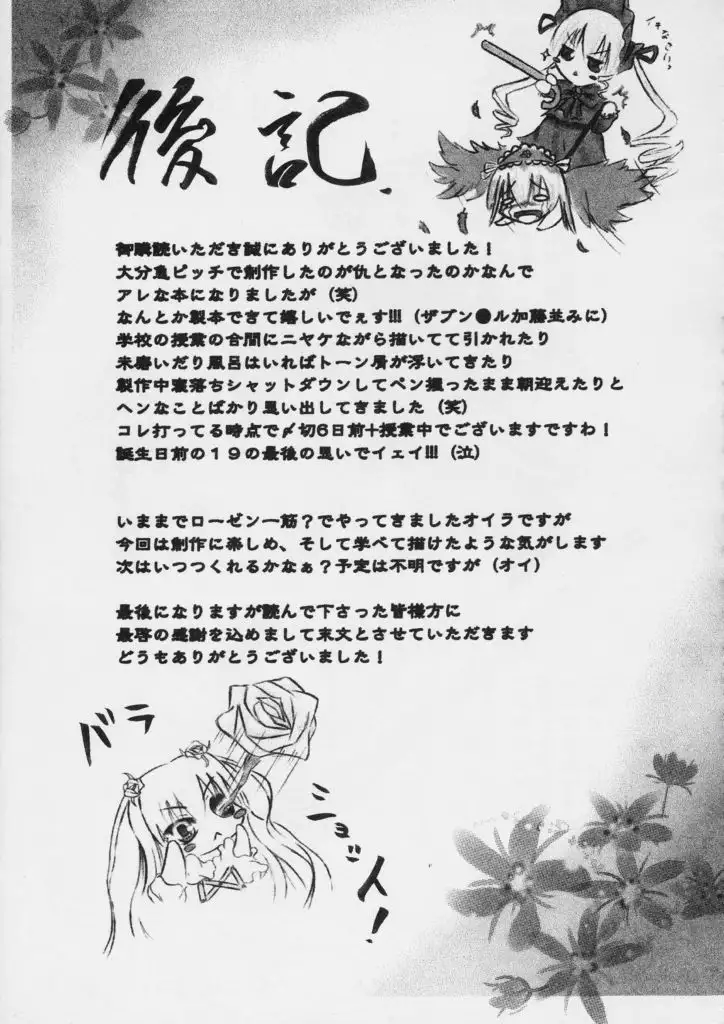 後記
御購読いただき誠にありがとうございました！
大分急ピッチで創作したのが仇となったのかなんで
アレな本になりましたが（笑）
なんとか製本できて嬉しいでぇす!!!（ザブン●ル加藤並みに）
学校の授業の合間にニヤケながら描いてて引かれたり
未磨いだり風呂はいればトーン屑が浮いてきたり
製作中寝落ちシャットダウンしてペン握ったまま朝迎えたりと
ヘンなことばかり思い出してきました（笑）
コレ打ってる時点で〆切6日前+授業中でございますですわ！
誕生日前の１９の最後の思いでイェイ!!!（泣）
いままでローゼン一筋？でやってきましたオイラですが
今回は創作に楽しめ、そして学べて描けたような気がします
次はいつつくれるかなぁ？予定は不明ですが（オイ）
最後になりますが読んで下さった皆様方に
最啓の感謝を込めまして末文とさせていただきます
どうもありがとうございました！
バラ
ショジ人！